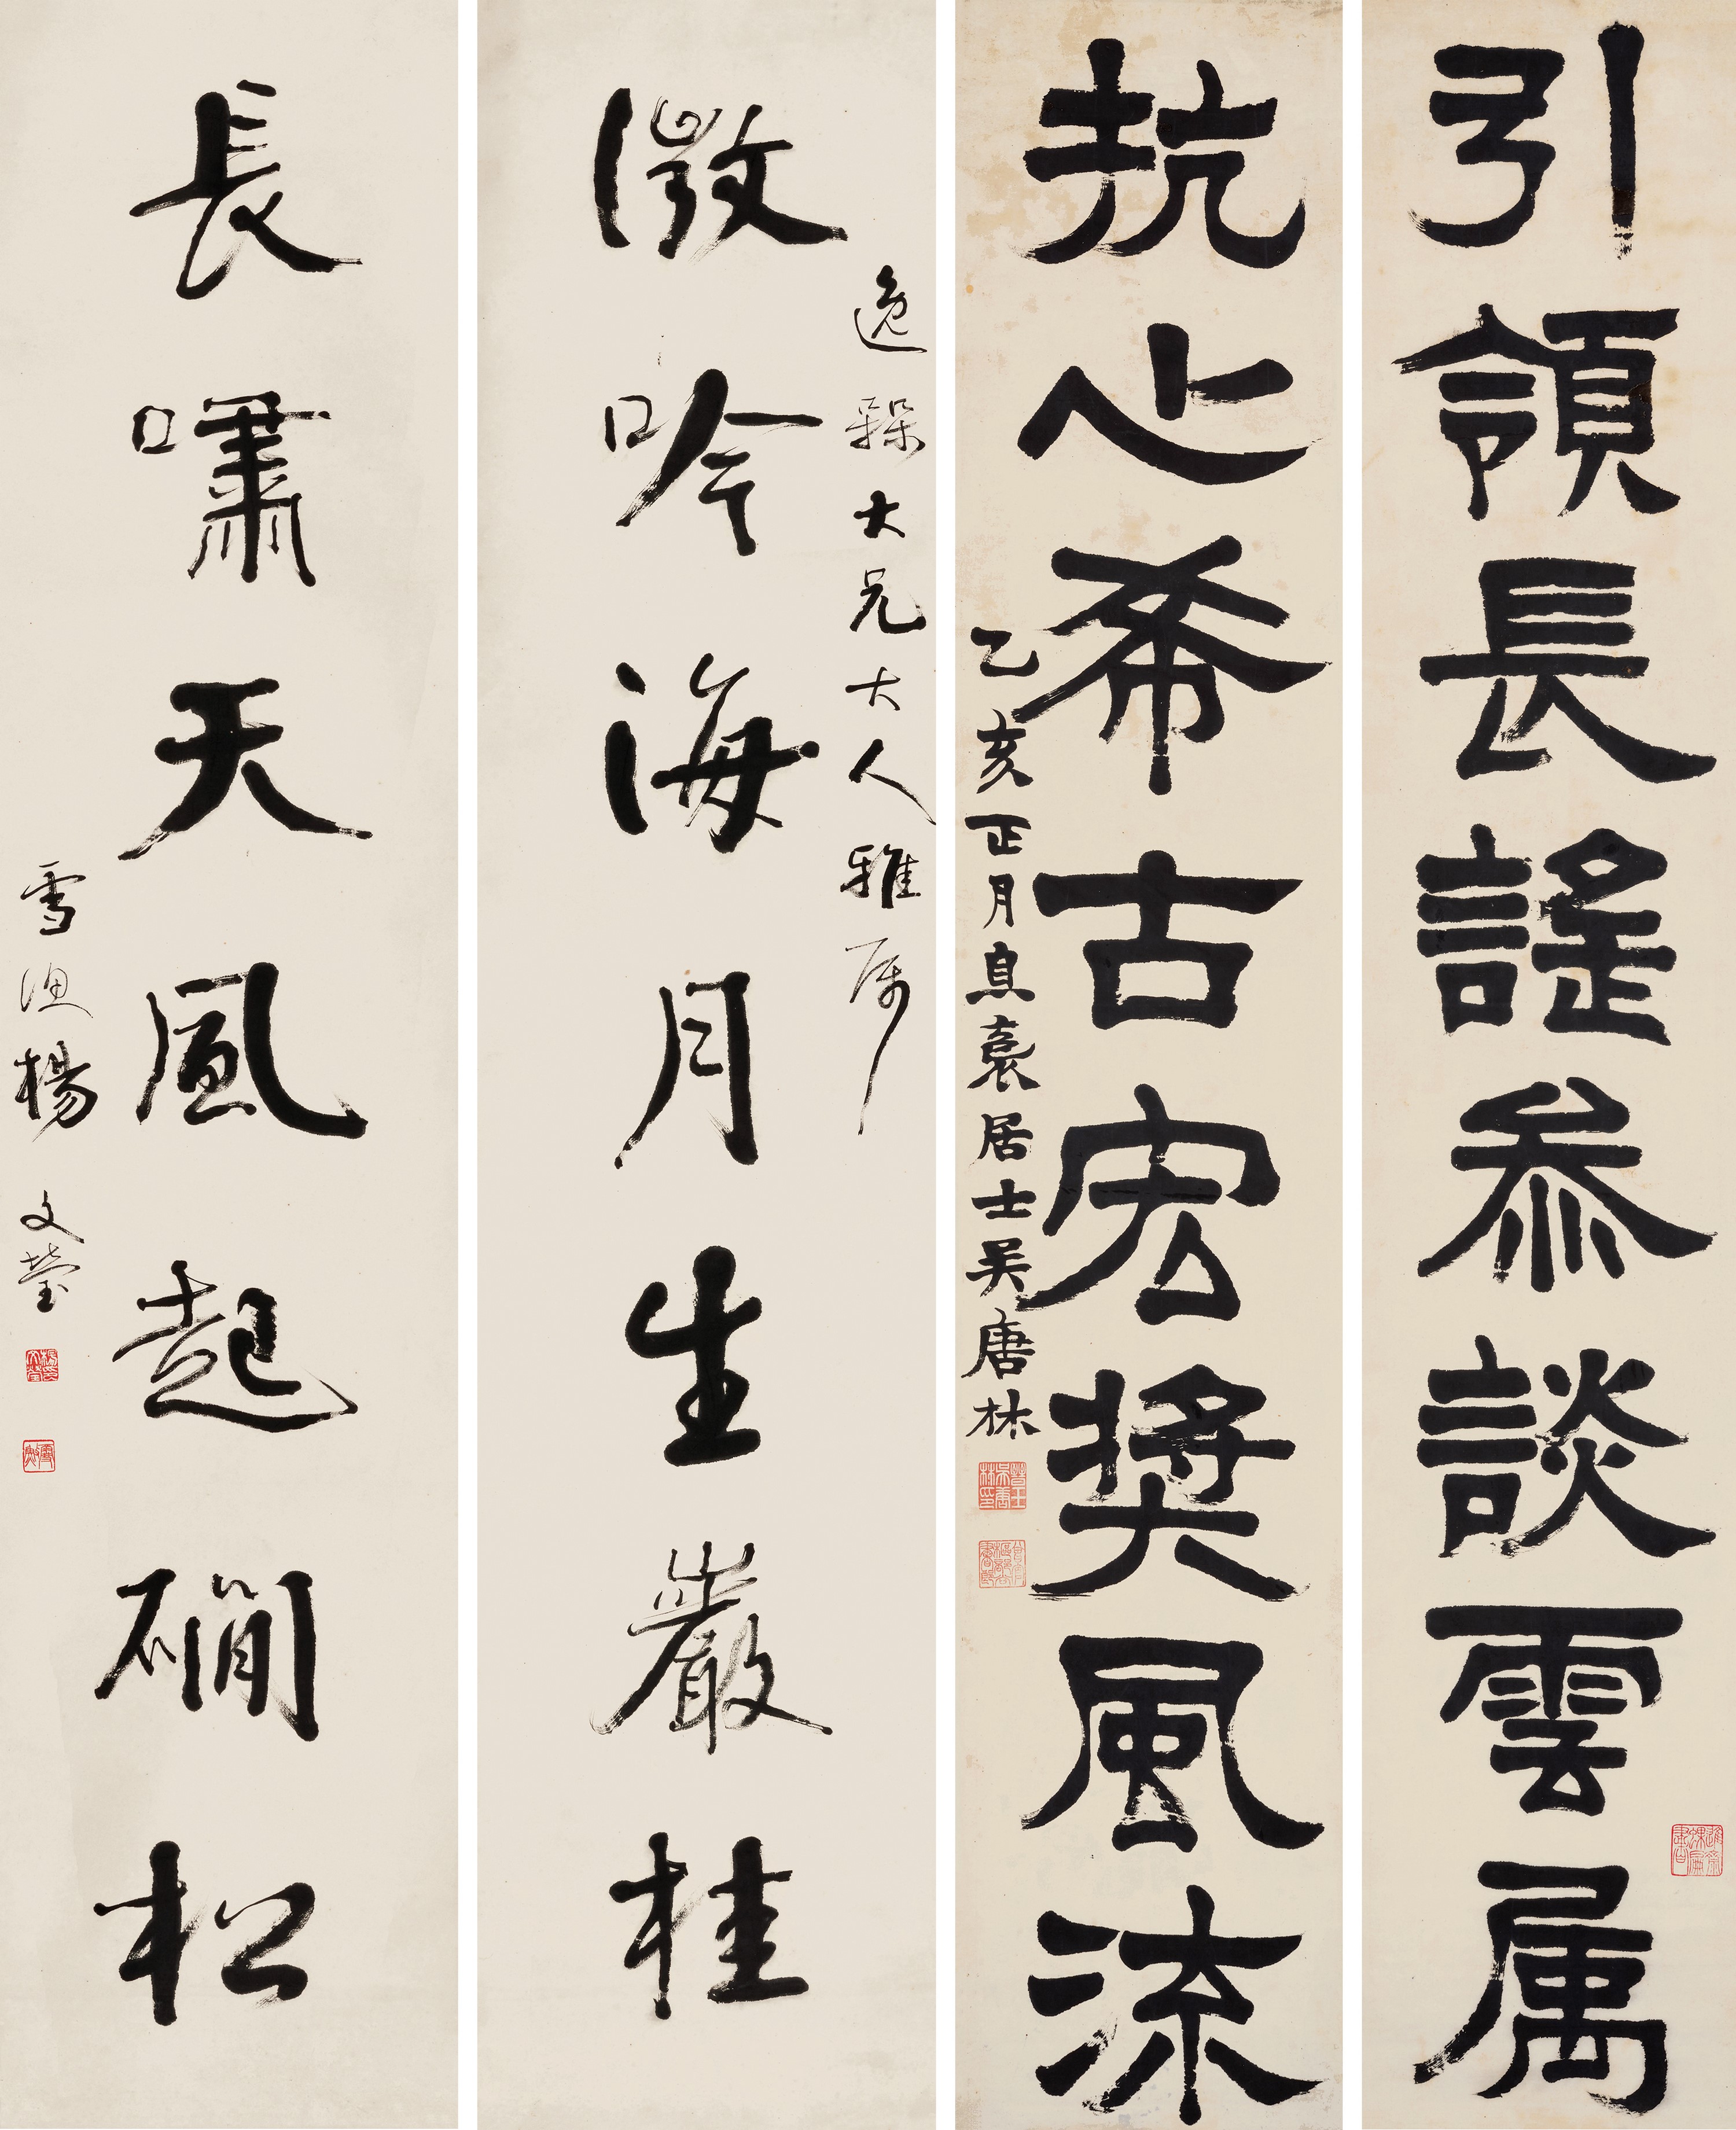 引領長謠參談雲属
抗心希古宏奨風流
乙亥正月息裛居士吴唐林
澂吟海月生巖桂
逸
大兄大人雅属
長嘯天風起磵松
雪漁楊文瑩